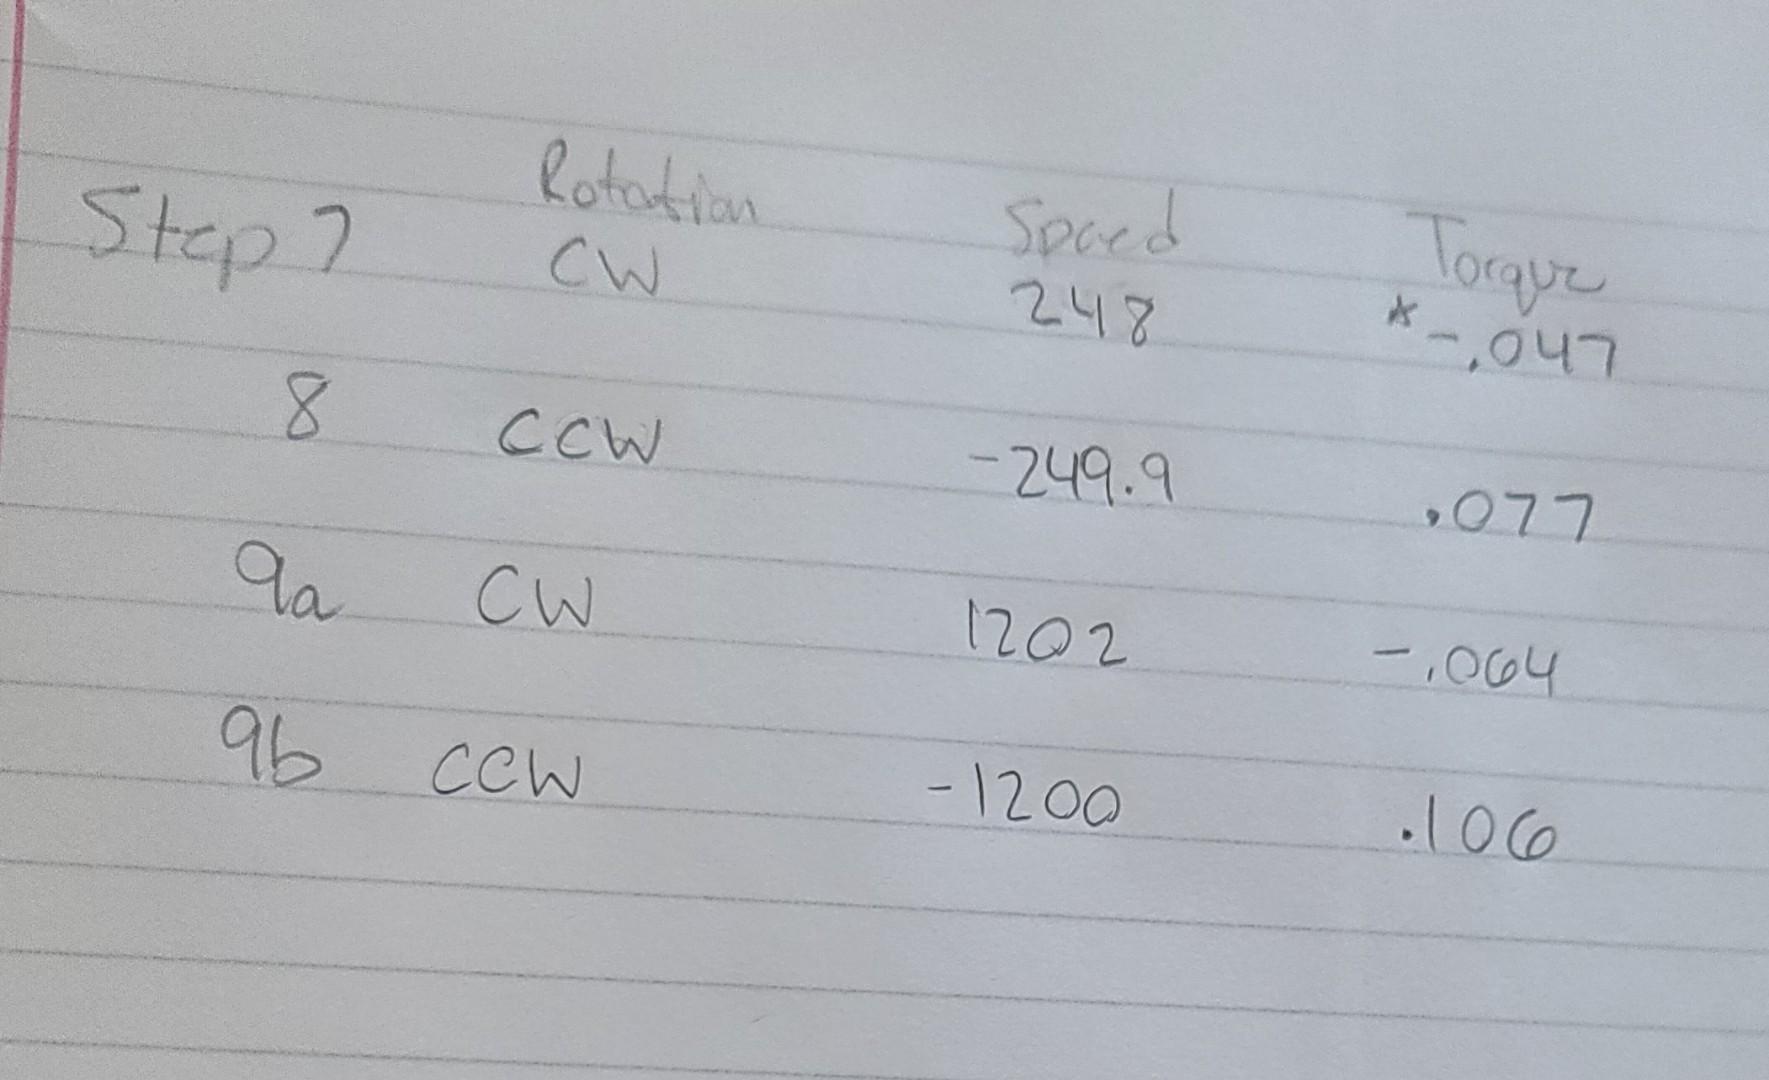 Rotation Speed Torque
Step 7 CW 248 *-.047
8 CCW -249.9 .077
9a CW 1202 -.064
9b CCW -1200 .106